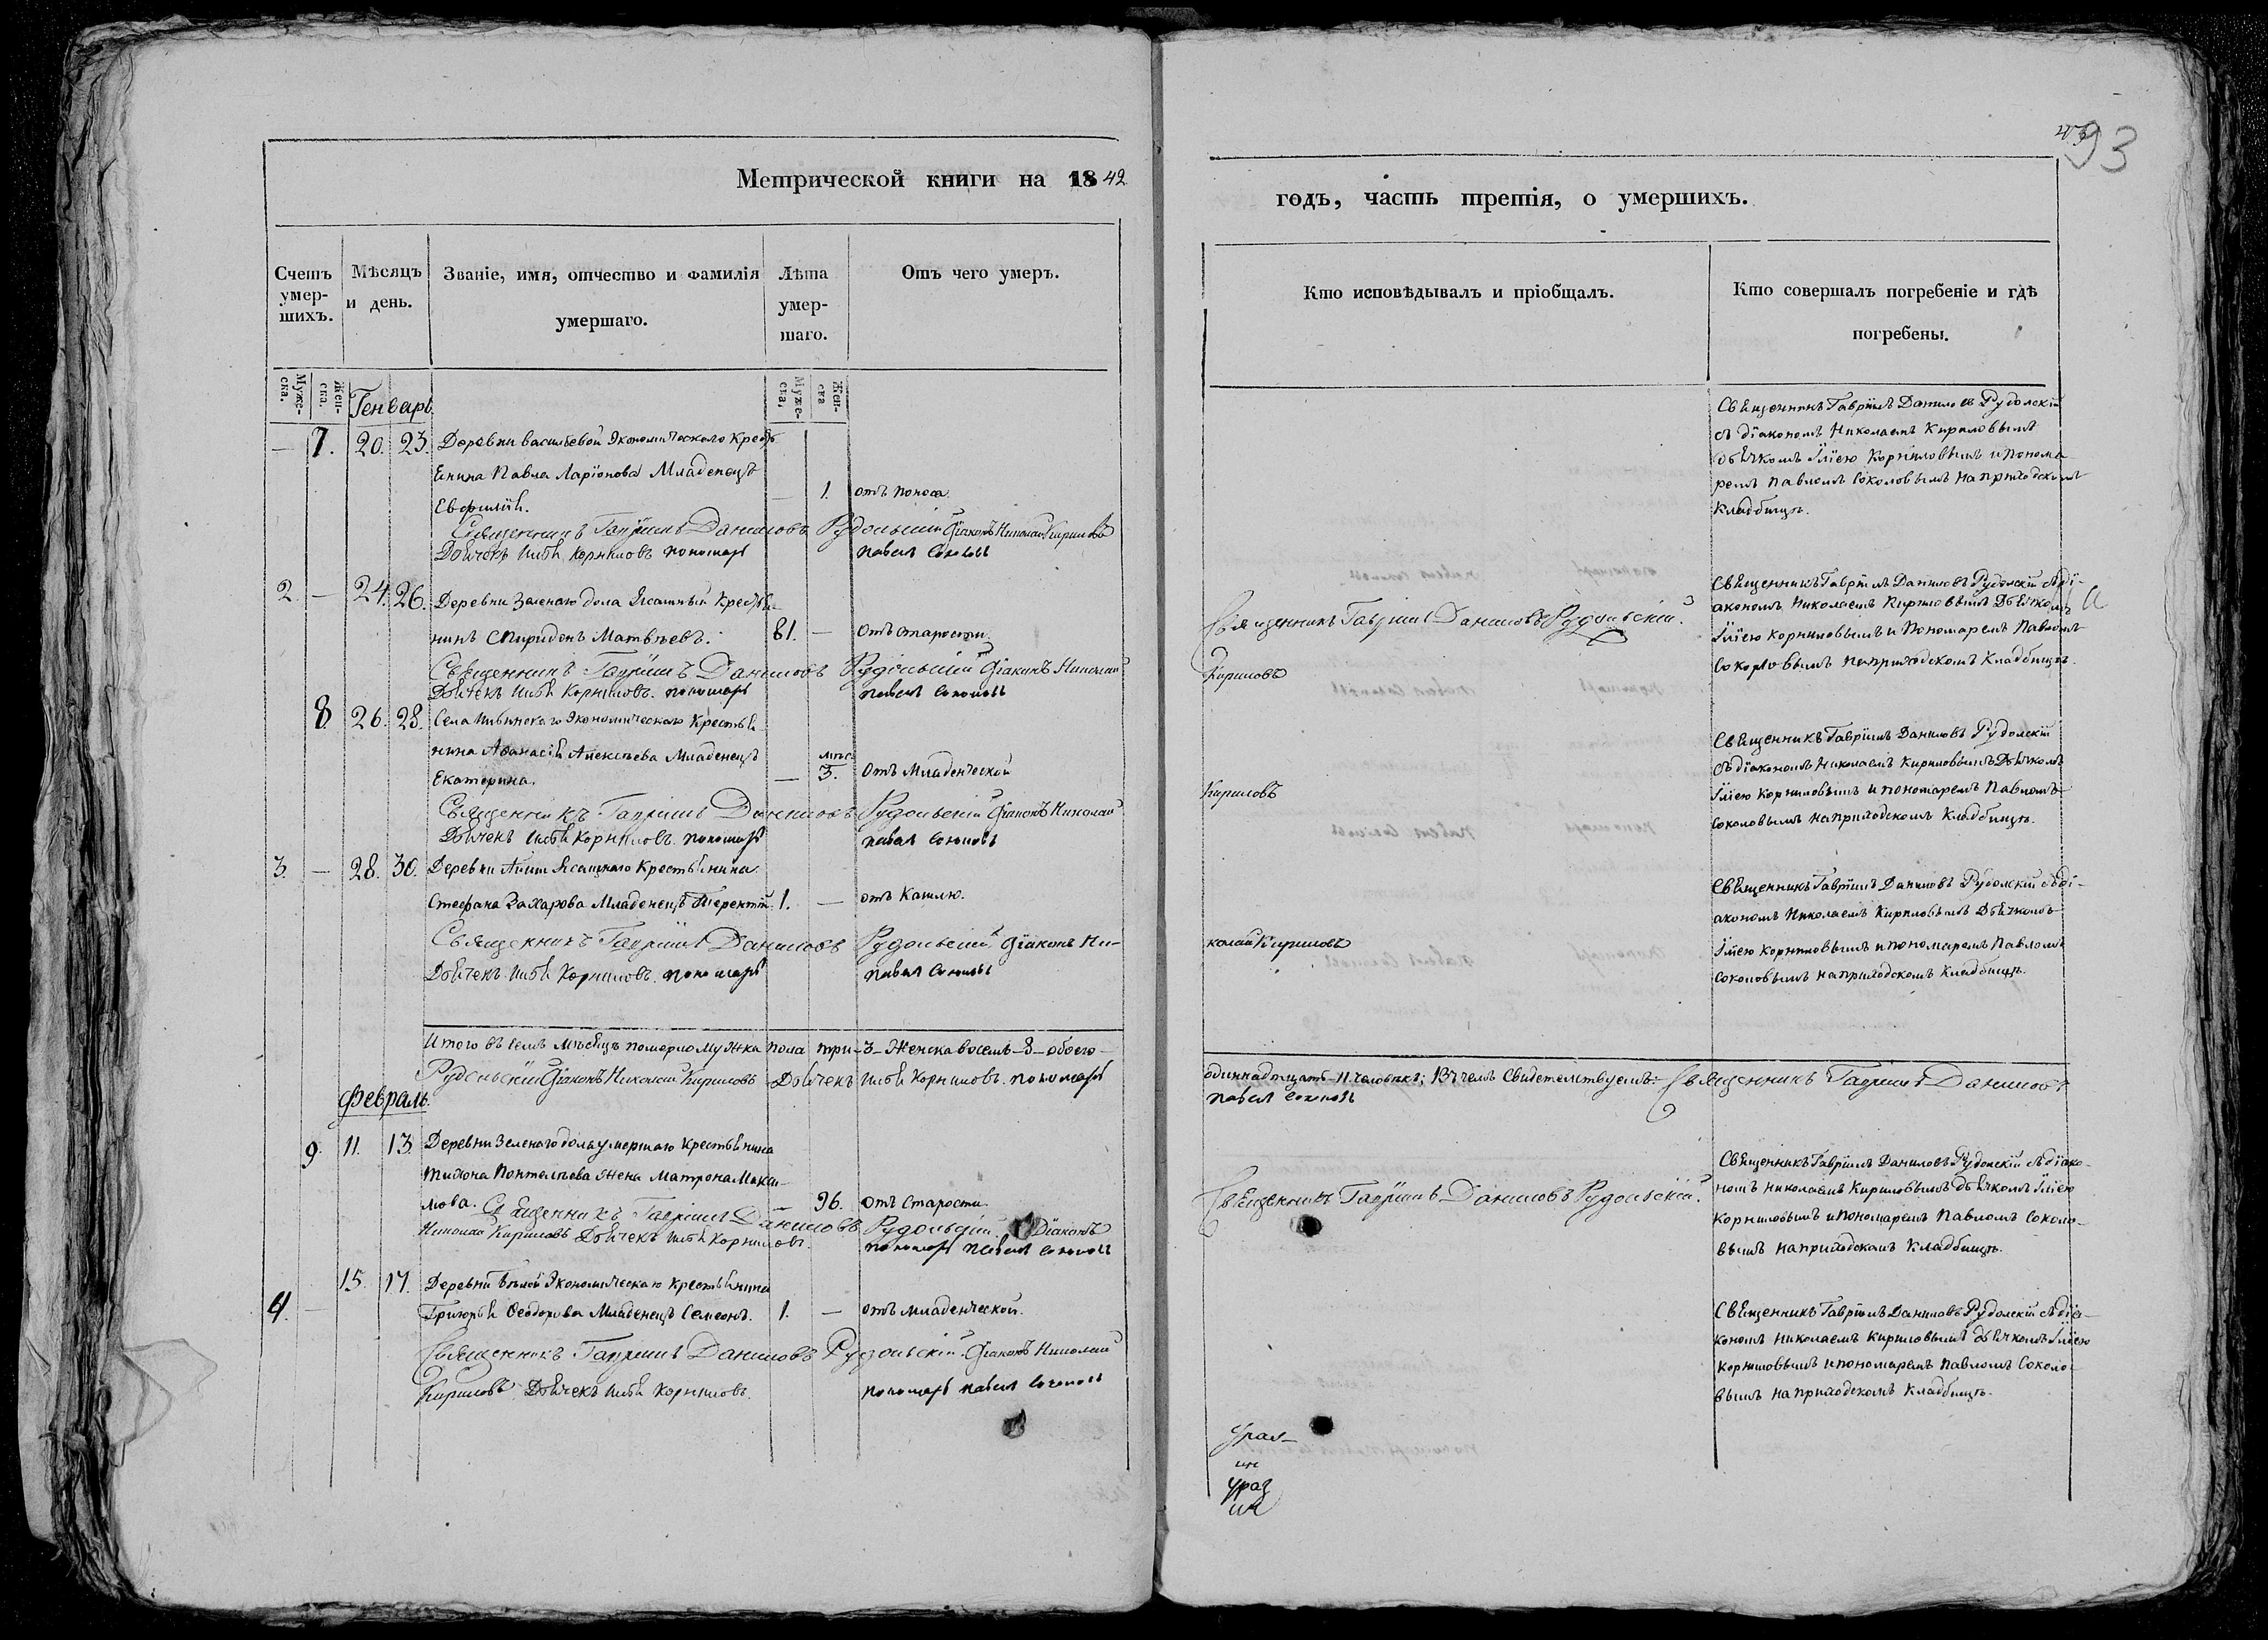 Метрической книги на 1842
Счетъ умер-шихъ.
Мѣсяцъ и день.
Званіе, имя, отчество и фамилія умершаго.
Лѣта умер-шаго.
Отъ чего умеръ.
Муже-ска.
Жен-ска.
Муже-ска,
Жен-ска
Генварь.
— 7. 20. 23. Деревни васильевой Экономическаго Кресть
енина Павла Ларіонова Младенецъ
— 1. отъ поноса.
Евфимія.
Священникъ Гавріилъ Даниловъ Рудольскій Діаконъ Николай Кириловъ
Дьячекъ Илья Корниловъ пономарь павелъ Соколовъ
2. — 24. 26. Деревни Зеленаго дола Ясашный Кресть
нинъ Спиридонъ Матвѣевъ. 81. — Отъ старости
Священникъ Гавріилъ Даниловъ Рудольскій Діаконъ Николай
Дьячекъ Илья Корниловъ. пономарь павелъ Соколовъ
8. 26. 28. Села Экономическаго Крестья
нина Аѳанасія Алексѣева Младенецъ
мѣс.
Екатерина. — 3. Отъ Младенческой
Священникъ Гавріилъ Даниловъ Рудольскій Діаконъ Николай
Дьячекъ Илья Корниловъ. пономарь павелъ Соколовъ
3. — 28. 30. Деревни Ясашнаго Крестьянина
Стефана Захарова Младенецъ Терентій. 1. — отъ Кашлю.
Священникъ Гавріилъ Даниловъ Рудольскій Діаконъ Ни-
Дьячекъ Илья Корниловъ. пономарь павелъ Соколовъ
Итого въ семъ мѣсяцѣ померло мужска пола три-3-Женска восемь-8-обоего-
Рудольскій Діаконъ Николай Кириловъ Дьячекъ Илья Корниловъ. пономарь
Февраль.
9. 11. 13. Деревни Зеленаго дола умершаго Крестьянина
Тихона Понтелѣева Жена Матрона Макси-
мова. — 96. Отъ Старости.
Священникъ Гавріилъ Даниловъ Рудольскій. Діаконъ
Николай Кириловъ Дьячекъ Илья Корниловъ. пономарь павелъ Соколовъ
15. 17. Деревни Бѣлой Экономическаго Крестьянина
4. — Григорья Ѳеодорова Младенецъ Семеонъ. 1. — отъ младенческой.
Священникъ Гавріилъ Даниловъ Рудольскій. Діаконъ Николай
Кириловъ Дьячекъ Илья Корниловъ. пономарь павелъ Соколовъ
93
годъ, часть третія, о умершихъ.
Кто исповѣдывалъ и пріобщалъ.
Кто совершалъ погребеніе и гдѣ погребены.
Священникъ Гавріилъ Даниловъ Рудолскій
съ діакономъ Николаемъ Кириловымъ
дьячкомъ Іліею Корниловымъ и понома
ремъ Павломъ Соколовымъ на приходскомъ
Кладбищѣ.
Священникъ Гавріилъ Даниловъ Рудолскій съ ді-
акономъ Николаемъ Кириловымъ Дьячкомъ
Священникъ Гавріилъ Даниловъ Рудольскій.
Іліею Корниловымъ и Пономаремъ Павломъ
Кириловъ
Соколовымъ на приходскомъ Кладбищѣ.
Священникъ Гавріилъ Даниловъ Рудолскій
съ діакономъ Николаемъ Кириловымъ Дьячкомъ
Кириловъ
Іліею Корниловымъ и пономаремъ Павломъ
Соколовымъ на приходскомъ Кладбищѣ.
Священникъ Гавріилъ Даниловъ Рудолскій съ ді-
акономъ Николаемъ Кириловымъ Дьячкомъ
колай Кириловъ
Іліею Корниловымъ и пономаремъ Павломъ
Соколовымъ на приходскомъ Кладбищѣ.
одиннадцать-11 человѣкъ; Въ чемъ Свидетельствуемъ: Священникъ Гавріилъ Даниловъ
павелъ Соколовъ
Священникъ Гавріилъ Даниловъ Рудолскій съ діако-
номъ Николаемъ Кириловымъ дьячкомъ Іліею
Священникъ Гавріилъ Даниловъ Рудольскій.
Корниловымъ и пономаремъ Павломъ Соколо-
вымъ на приходскомъ Кладбищѣ.
Священникъ Гавріилъ Даниловъ Рудолскій съ діа-
кономъ Николаемъ Кириловымъ дьячкомъ Іліею
Корниловымъ и пономаремъ Павломъ Соколо-
вымъ на приходскомъ Кладбищѣ.